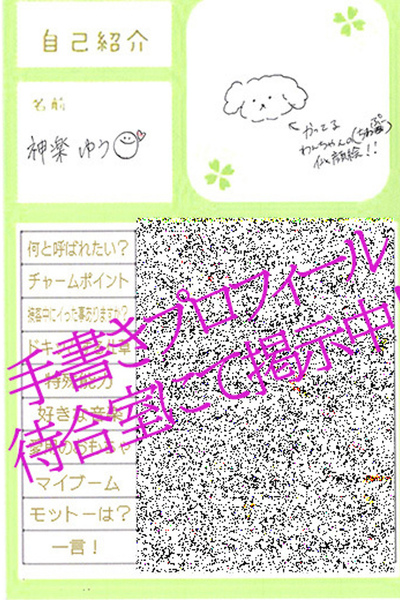 自己紹介
名前
神楽ゆう
←かってる
わんちゃんの
似顔絵!!
何と呼ばれたい?
チャームポイント
接客中にイった事ありますか?
特殊能力
マイブーム
モットーは?
一言!
手書きプロフィール
待合室にて掲示中!